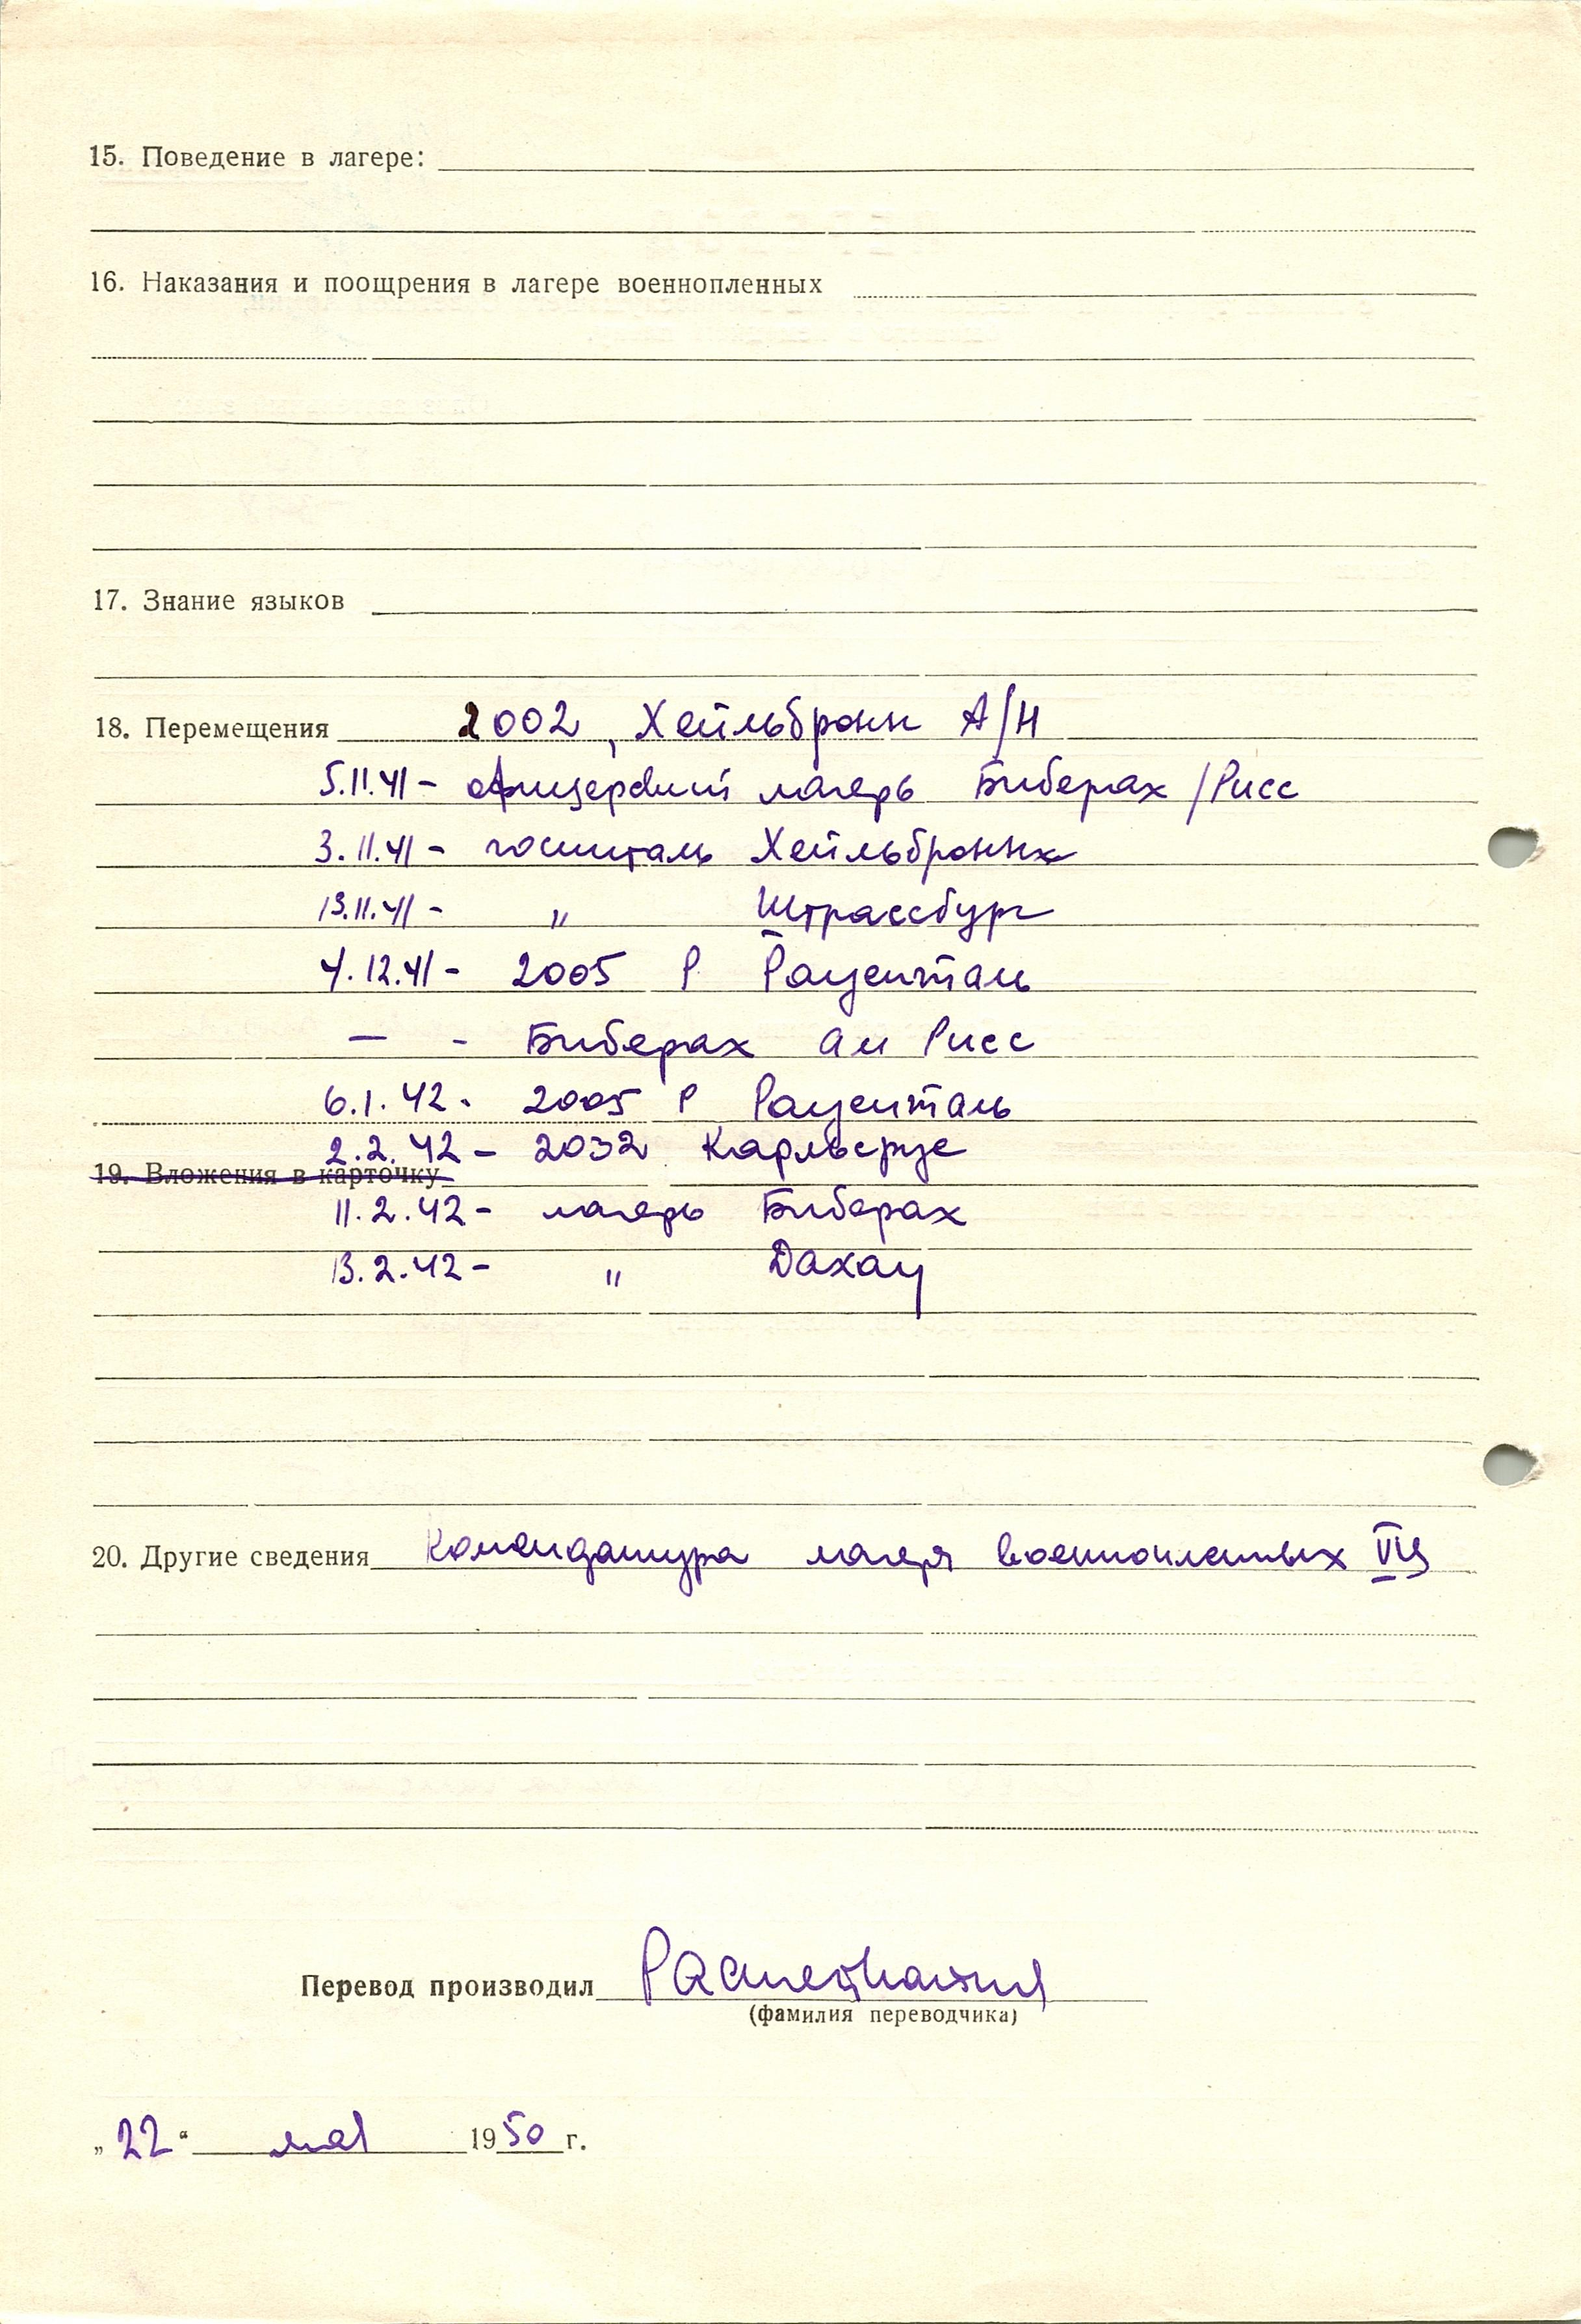 15. Поведение в лагере:
16. Наказания и поощрения в лагере военнопленных
17. Знание языков
18. Перемещения 2002, Хейльбронн А/Н
5.11.41 - офицерский лагерь Биберах /Рисс
3.11.41 - госпиталь Хейльбронн
13.11.41 - " Штрассбург
4.12.41 - 2005 Р Рауенталь
— - Биберах ам Рисс
6.1.42 - 2005 Р Рауенталь
2.2.42 - 2032 Карльсруе
19. Вложения в карточку
11.2.42 - лагерь Биберах
13.2.42 - " Дахау
20. Другие сведения Комендатура лагеря военнопленных
Перевод производил
(фамилия переводчика)
„22“ мая 1950 г.